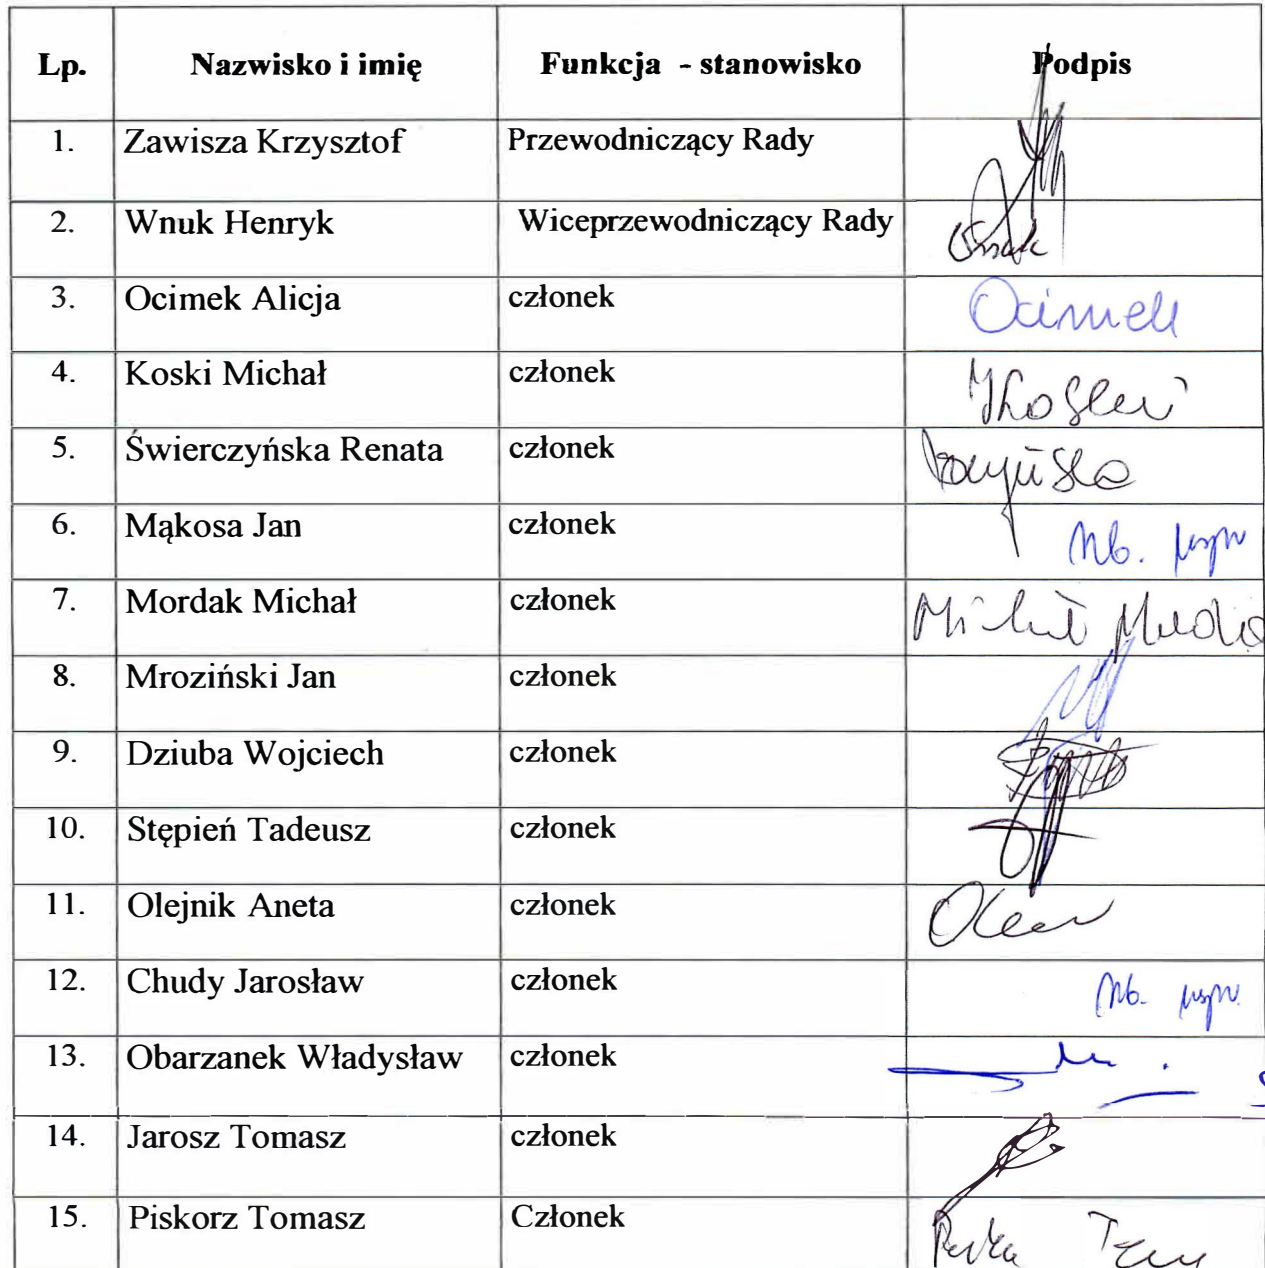 Lp. Nazwisko i imię Funkcja - stanowisko Podpis
1. Zawisza Krzysztof Przewodniczący Rady
2. Wnuk Henryk Wiceprzewodniczący Rady Wnuk
3. Ocimek Alicja członek Ocimek
4. Koski Michał członek MKoski
5. Świerczyńska Renata członek
6. Mąkosa Jan członek Nb. uspr
7. Mordak Michał członek Michał
8. Mroziński Jan członek
9. Dziuba Wojciech członek
10. Stępień Tadeusz członek
11. Olejnik Aneta członek
12. Chudy Jarosław członek Nb. uspr.
13. Obarzanek Władysław członek
14. Jarosz Tomasz członek
15. Piskorz Tomasz Członek